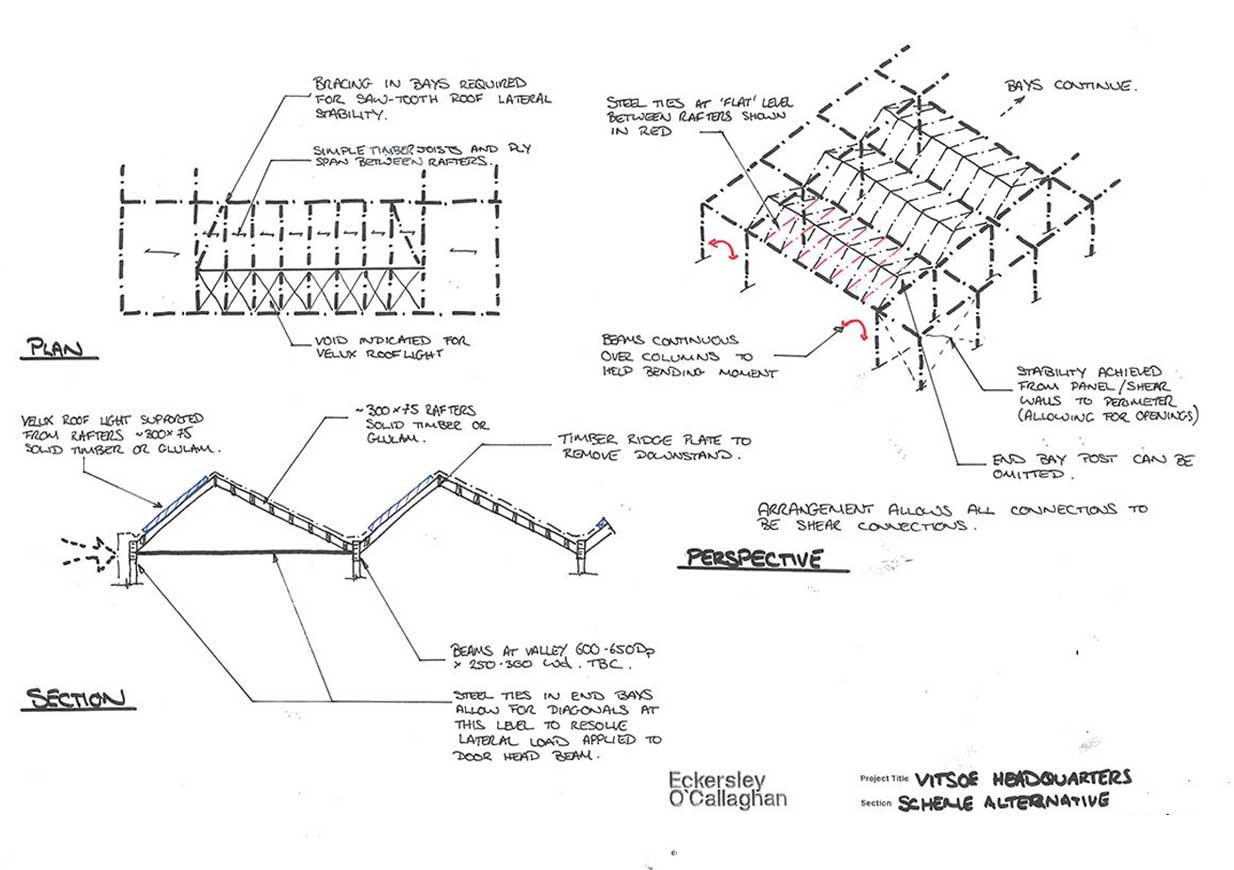 BRACING IN BAYS REQUIRED
FOR SAW-TOOTH ROOF LATERAL
STABILITY.
SIMPLE TIMBER JOISTS AND PLY
SPAN BETWEEN RAFTERS.
VOID INDICATED FOR
VELUX ROOFLIGHT
PLAN
STEEL TIES AT 'FLAT' LEVEL
BETWEEN RAFTERS SHOWN
IN RED
BAYS CONTINUE.
BEAMS CONTINUOUS
OVER COLUMNS TO
HELP BENDING MOMENT
STABILITY ACHIEVED
FROM PANEL/SHEAR
WALLS TO PERIMETER
(ALLOWING FOR OPENINGS)
END BAY POST CAN BE
OMITTED.
ARRANGEMENT ALLOWS ALL CONNECTIONS TO
BE SHEAR CONNECTIONS.
PERSPECTIVE
VELUX ROOF LIGHT SUPPORTED
FROM RAFTERS ~300x75
SOLID TIMBER OR GLULAM.
~300x75 RAFTERS
SOLID TIMBER OR
GLULAM.
TIMBER RIDGE PLATE TO
REMOVE DOWNSTAND.
BEAMS AT VALLEY 600-650Dp
x 250-300 Wd. TBC.
STEEL TIES IN END BAYS
ALLOW FOR DIAGONALS AT
THIS LEVEL TO RESOLVE
LATERAL LOAD APPLIED TO
DOOR HEAD BEAM.
SECTION
Eckersley
O'Callaghan
Project Title VITSOE HEADQUARTERS
Section SCHEME ALTERNATIVE